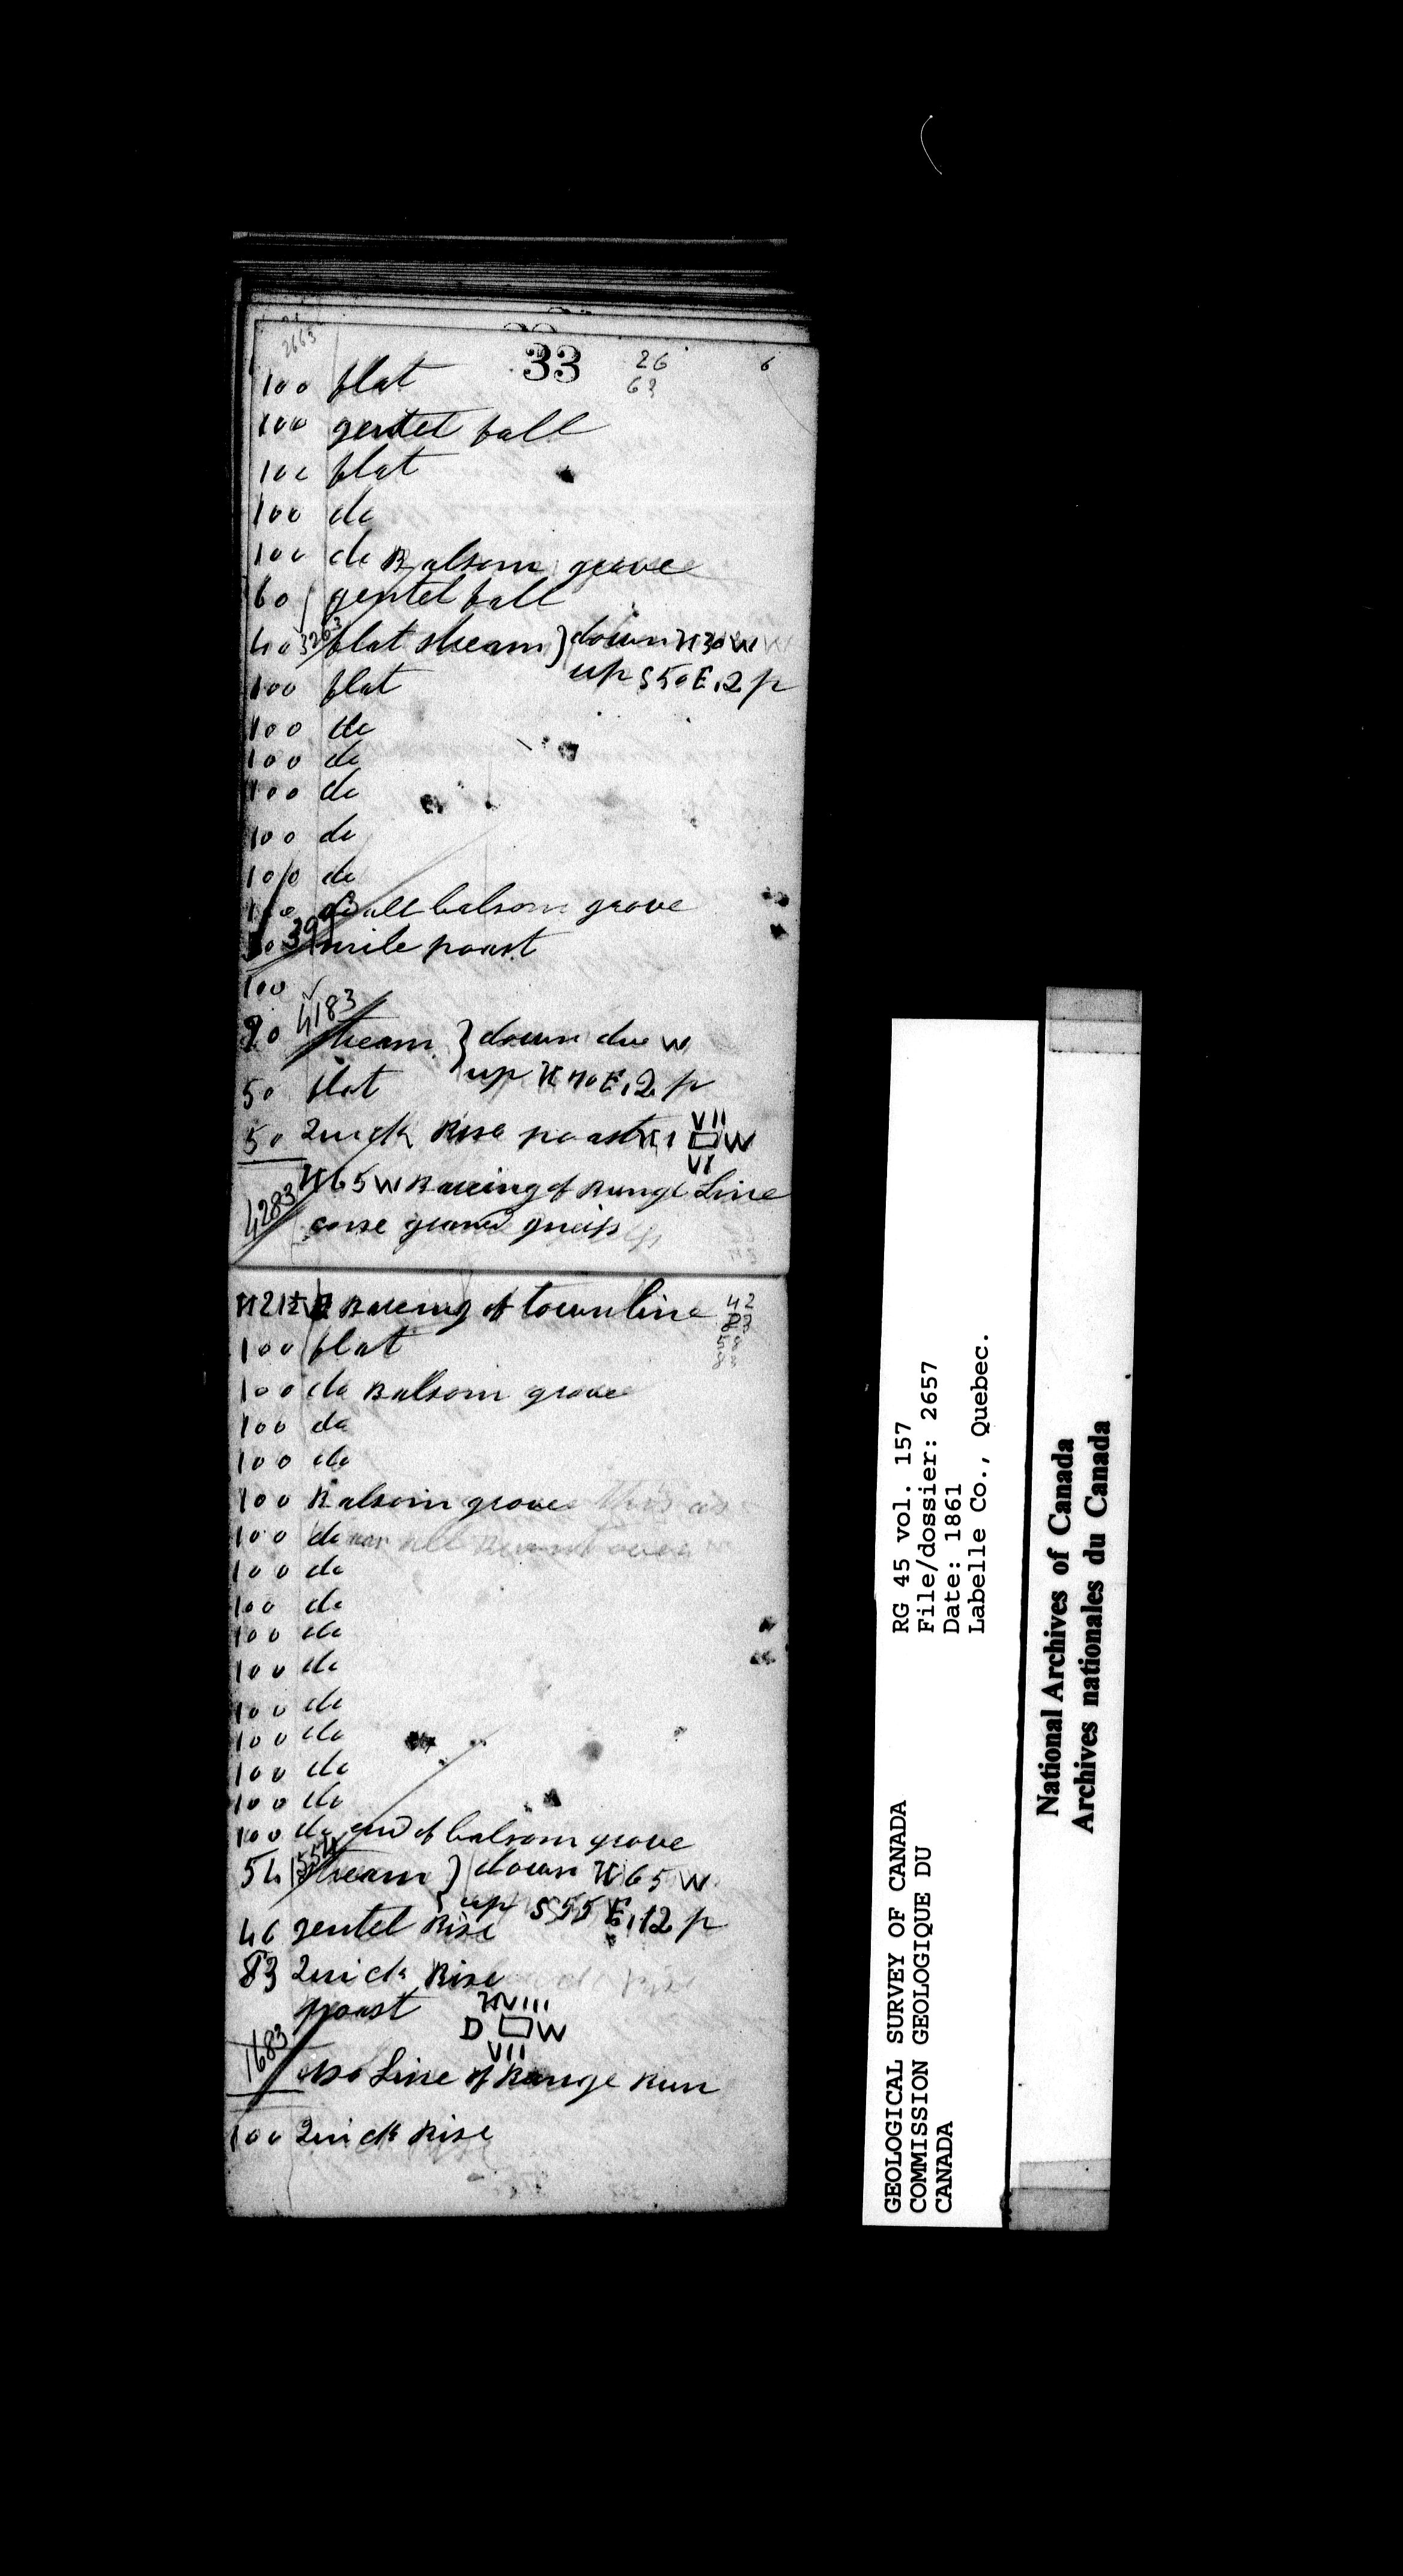 33
2663
26
63
6
100 flat
100 gentel fall
100 flat
100 do
100 do Balsom grove
60 gentel fall
40 3263 flat stream } down N30W
up S50E, 2 p
100 flat
100 do
100 do
100 do
100 do
100 do
100 do all balsom grove
mile poast
100
4183
stream } down due W
50 flat up N70E, 2 p
50 Quick Rise poast VII
W
VI
N65W Bareing of Runge Line
4283 corse graind gneiss
Bareing of town line 42
83
58
83
100 flat
100 do Balsom grove
100 do
100 do
100 Balsom grove
100 do
100 do
100 do
100 do
100 do
100 do
100 do
100 do
100 do
100 do end of balsom grove
54 stream } down N65W
up S55E, 12 p
46 gentel Rise
83 Quick Rise
poast VIII
D W
VII
1683
also Line of Range Run
100 Quick Rise
GEOLOGICAL SURVEY OF CANADA
COMMISSION GEOLOGIQUE DU
CANADA
RG 45 vol. 157
File/dossier: 2657
Date: 1861
Labelle Co., Quebec.
National Archives of Canada
Archives nationales du Canada